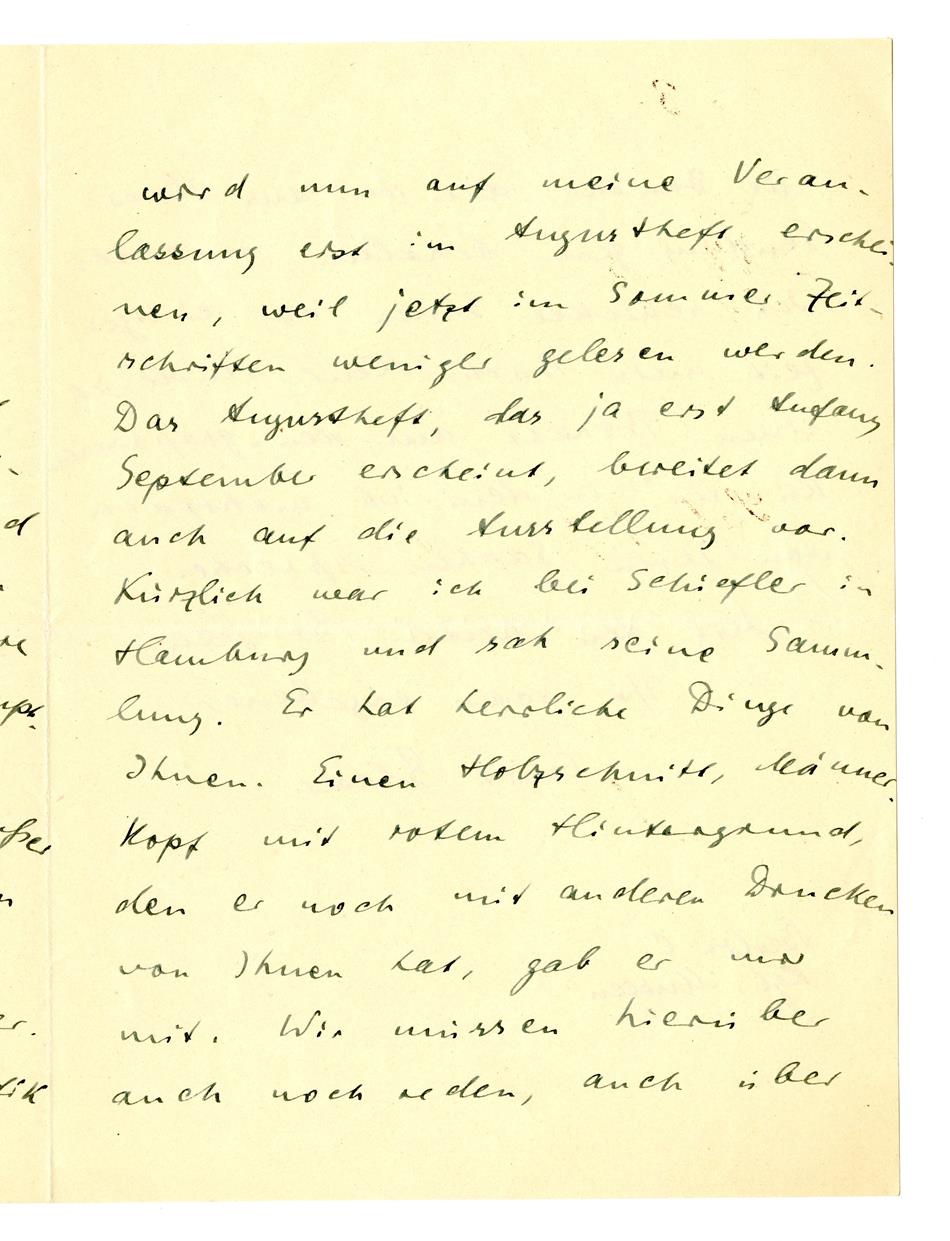 wird nun auf meine Veran-
lassung erst im Augustheft erschei-
nen, weil jetzt im Sommer Zeit-
schriften weniger gelesen werden.
Das Augustheft, das ja erst Anfang
September erscheint, bereitet dann
auch auf die Ausstellung vor.
Kürzlich war ich bei Schiefler in
Hamburg und sah seine Samm-
lung. Er hat herrliche Dinge von
Ihnen. Einen Holzschnitt, Männer-
Kopf mit rotem Hintergrund,
den er noch mit anderen Drucken
von Ihnen hat, gab er mir
mit. Wir müssen hierüber
auch noch reden, auch über